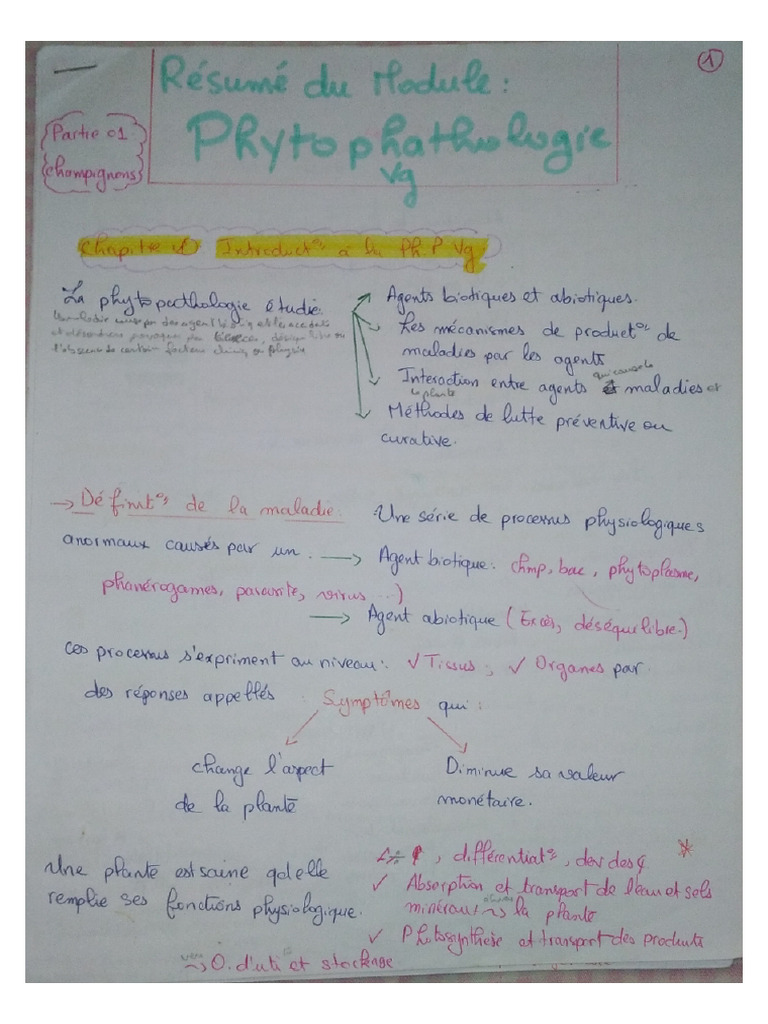 ①
Résumé du Module :
Partie 01
champignons
Phytophathologie
Vg
Chapitre 1 Introductº à la Ph.P Vg
La phytopathologie étudie:
Agents biotiques et abiotiques.
Les mécanismes de productº de
maladies par les agents
Interaction entre agents qui cause la maladies et
la plante
Méthodes de lutte préventive ou
curative.
→ Définitº de la maladie:
Une série de processus physiologiques
anormaux causés par un : → Agent biotique: chmp, bac, phytoplasme,
phanérogames, parasite, virus ...)
→ Agent abiotique (Excès, déséquilibre.)
Ces processus s'expriment au niveau: √ Tissus ; √ Organes par
des réponses appellés Symptômes qui :
change l'aspect
de la plante
Diminue sa valeur
monétaire.
Une plante est saine qd elle
remplie ses fonctions physiologique.
, différentiatº, dev des
✓ Absorption et transport de l'eau et sels
minéraux → la plante
✓ Photosynthèse et transport des produits
vers → O. d'uti et stockage